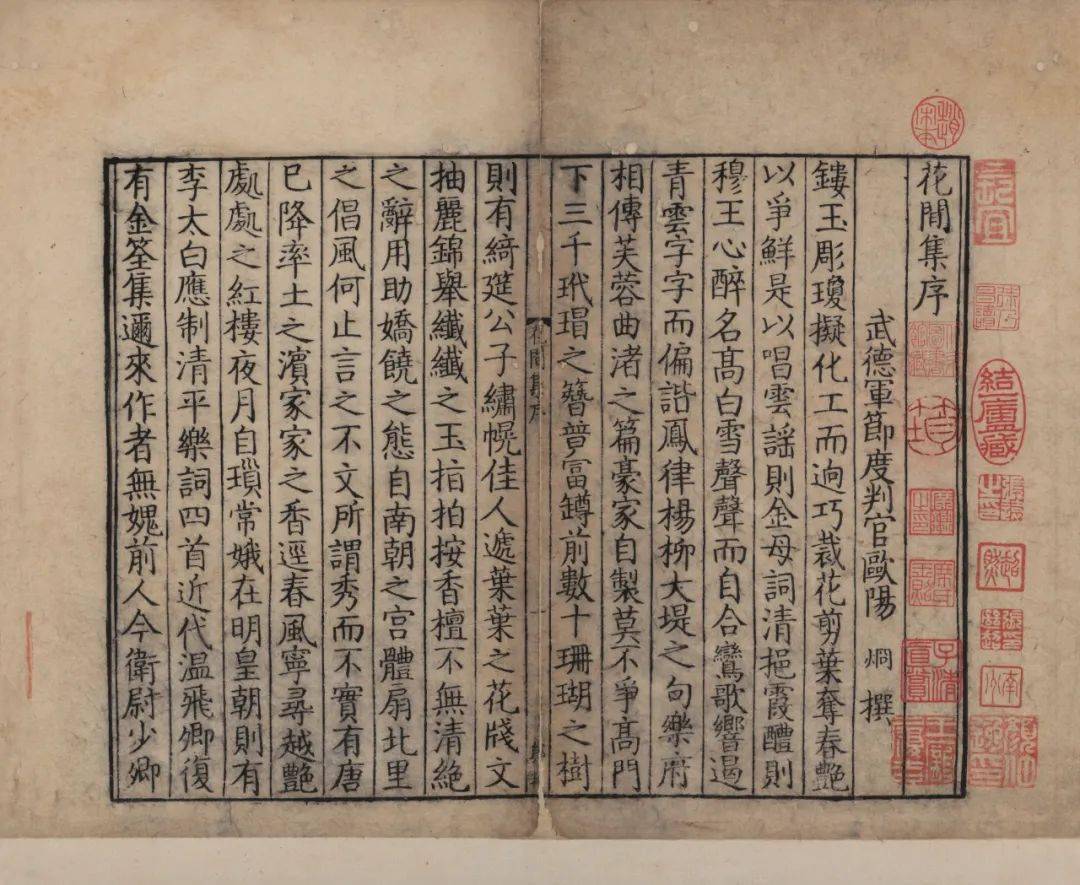 宋本
結一廬藏
子清真賞
花閒集序
武德軍節度判官歐陽 烱 撰
鏤玉彫瓊擬化工而逈巧裁花剪葉奪春艷
以爭鮮是以唱雲謠則金母詞清挹霞醴則
穆王心醉名髙白雪聲聲而自合鸞歌響遏
青雲字字而偏諧鳳律楊柳大堤之句樂府
相傳芙蓉曲渚之篇豪家自製莫不爭髙門
下三千玳瑁之簪競富罇前數十珊瑚之樹
花閒集序
則有綺筵公子繡幌佳人遞葉葉之花牋文
抽麗錦舉纖纖之玉指拍按香檀不無清絶
之辭用助嬌饒之態自南朝之宮體扇北里
之倡風何止言之不文所謂秀而不實有唐
已降率土之濱家家之香逕春風寧尋越艷
處處之紅樓夜月自瑣常娥在明皇朝則有
李太白應制清平樂詞四首近代温飛卿復
有金筌集邇來作者無媿前人今衛尉少卿